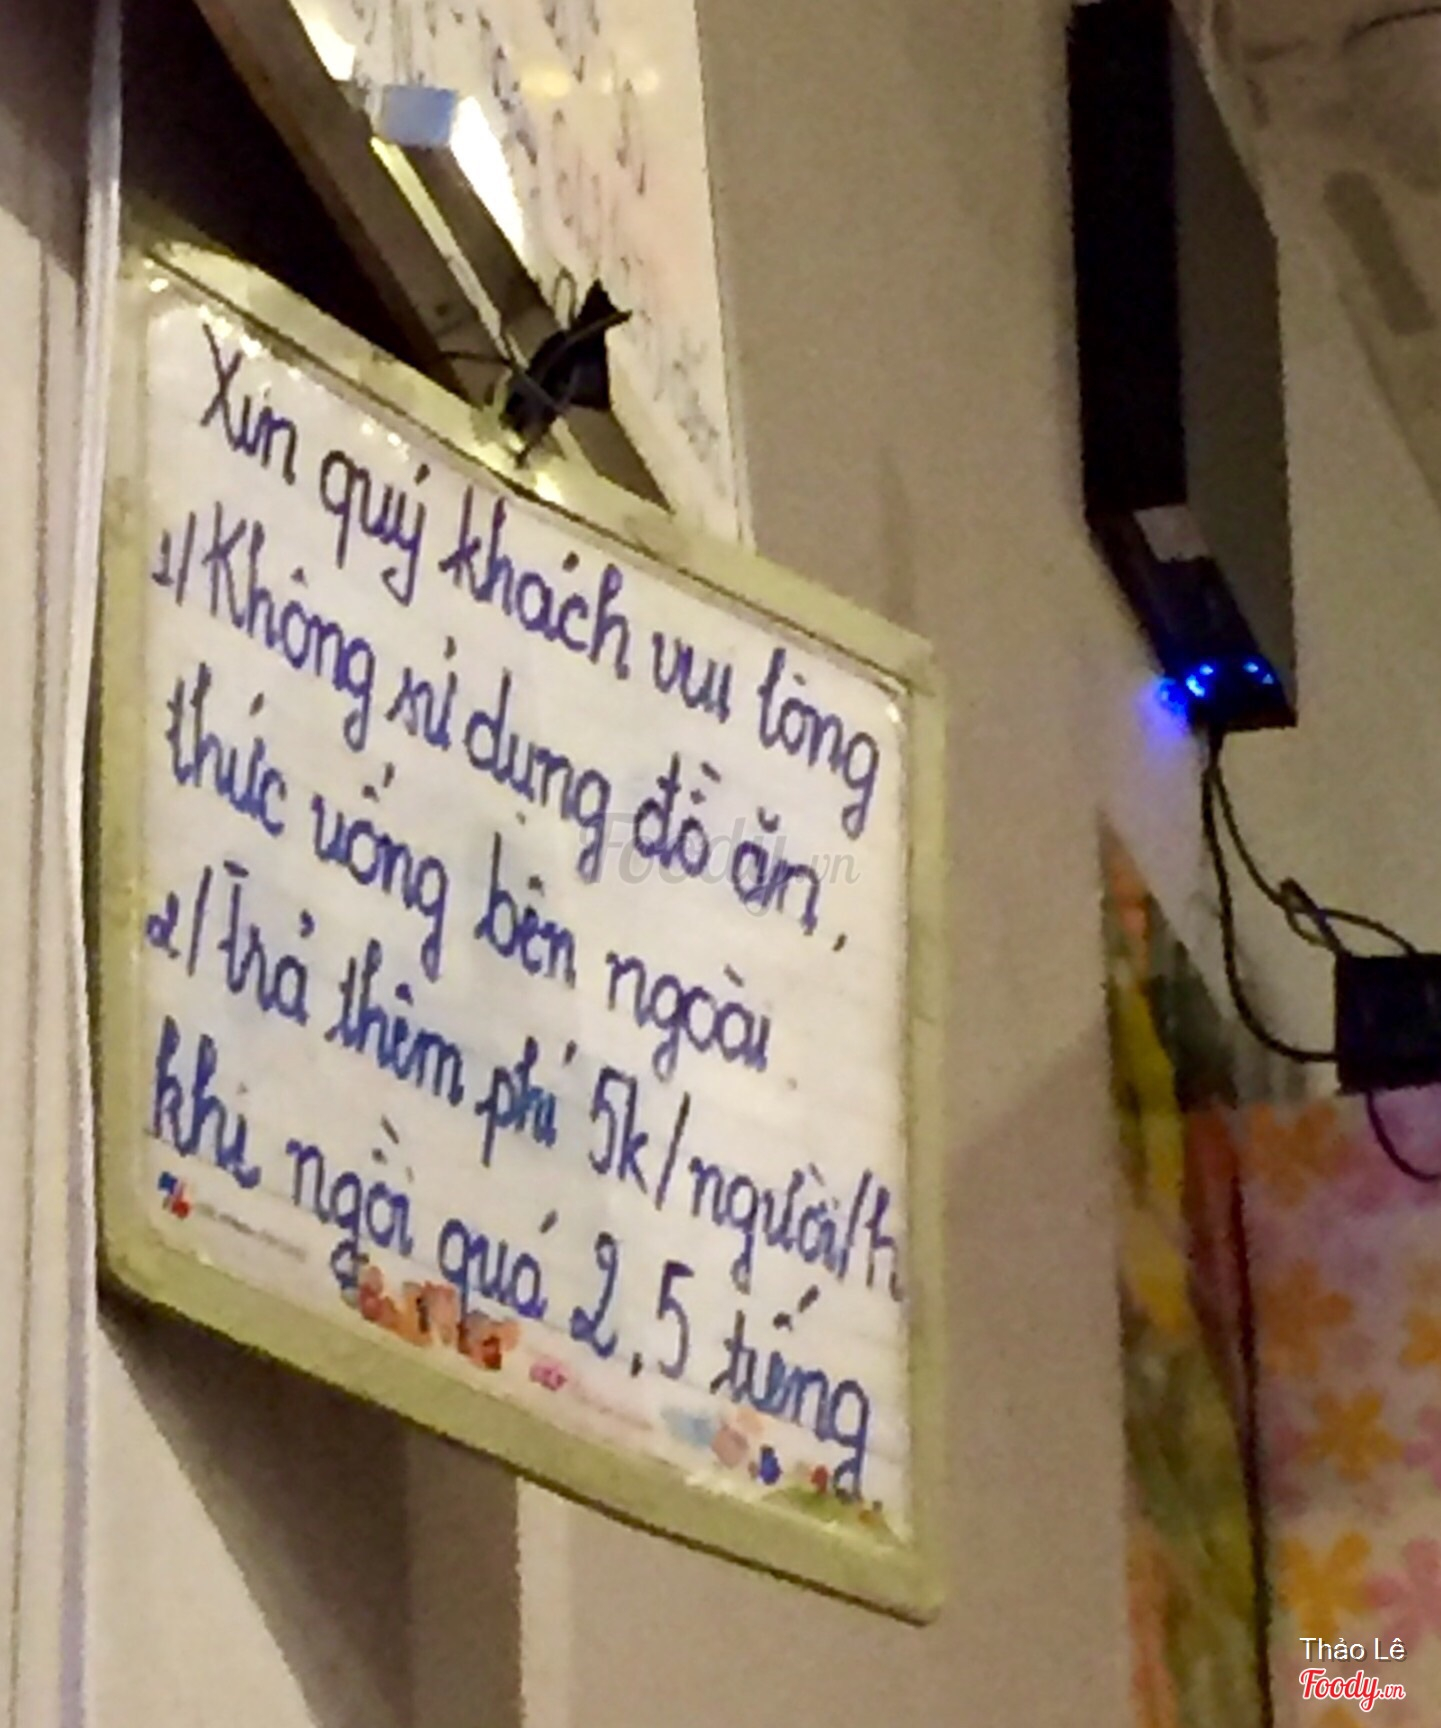 Xin quý khách vui lòng
1/ Không sử dụng đồ ăn,
thức uống bên ngoài.
2/ Trả thêm phí 5k/người/h
khi ngồi quá 2,5 tiếng
Foody.vn
Thảo Lê
Foody.vn